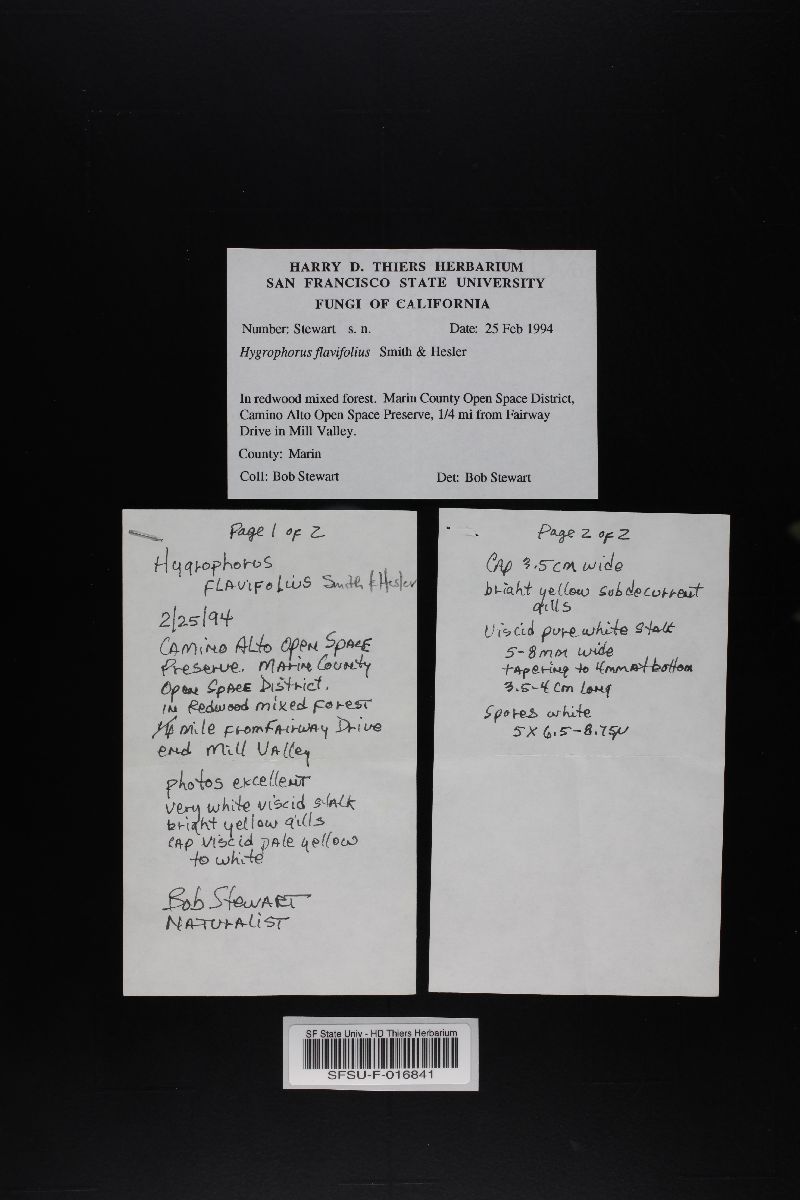 HARRY D. THIERS HERBARIUM
SAN FRANCISCO STATE UNIVERSITY
FUNGI OF CALIFORNIA
Number: Stewart s. n. Date: 25 Feb 1994
Hygrophorus flavifolius Smith & Hesler
In redwood mixed forest. Marin County Open Space District,
Camino Alto Open Space Preserve, 1/4 mi from Fairway
Drive in Mill Valley.
County: Marin
Coll: Bob Stewart Det: Bob Stewart
Page 1 of 2
Hygrophorus
FLAVIFOLIUS Smith & Hesler
2/25/94
CAMINO ALTO OPEN SPACE
Preserve. MARIN COUNTY
OPEN SPACE DISTRICT.
IN Redwood mixed forest
1/4 mile from FAIRWAY Drive
end Mill VAlley
photos excellent
very white viscid stalk
bright yellow gills
CAP viscid pale yellow
to white
Bob STEWART
NATURALIST
Page 2 of 2
CAP 3.5 cm wide
bright yellow subdecurrent
gills
Viscid pure white stalk
5-8 mm wide
tapering to 4mm at bottom
3.5-4 cm long
Spores white
5 x 6.5-8.75µ
SF State Univ - HD Thiers Herbarium
SFSU-F-016841